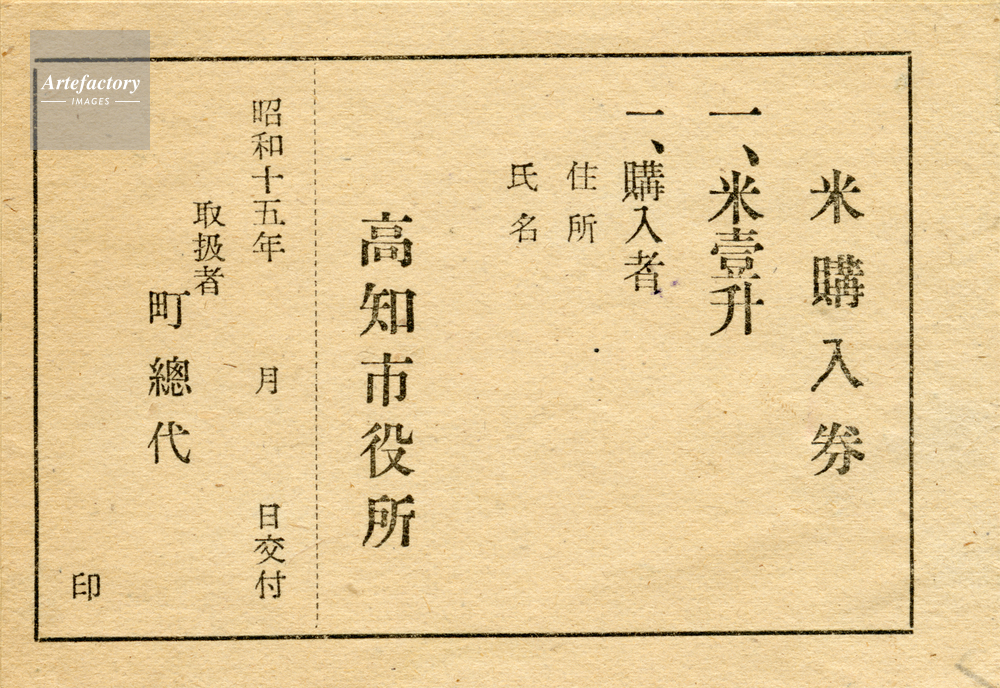 米購入券
一、米壹升
一、購入者
住所
氏名
高知市役所
昭和十五年 月 日交付
取扱者
町總代
印
Artefactory
IMAGES